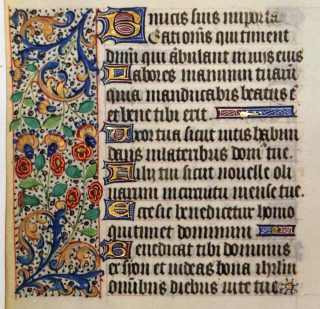 micis suis in porta
eati oms qui timent
dnm qui ābulant in viis eius
Labores manuum tuarū
quia manducabis beatus es
et bene tibi erit
Uxor tua sicut vitis habun
dans in lateribus dom' tue.
Filii tui sicut novelle oli
varum in circuitu mense tue.
Ecce sic benedicetur homo
qui timet dominum
Benedicat tibi dominus
ex syon et videas bona ihrlm
omibus diebus vite tue.